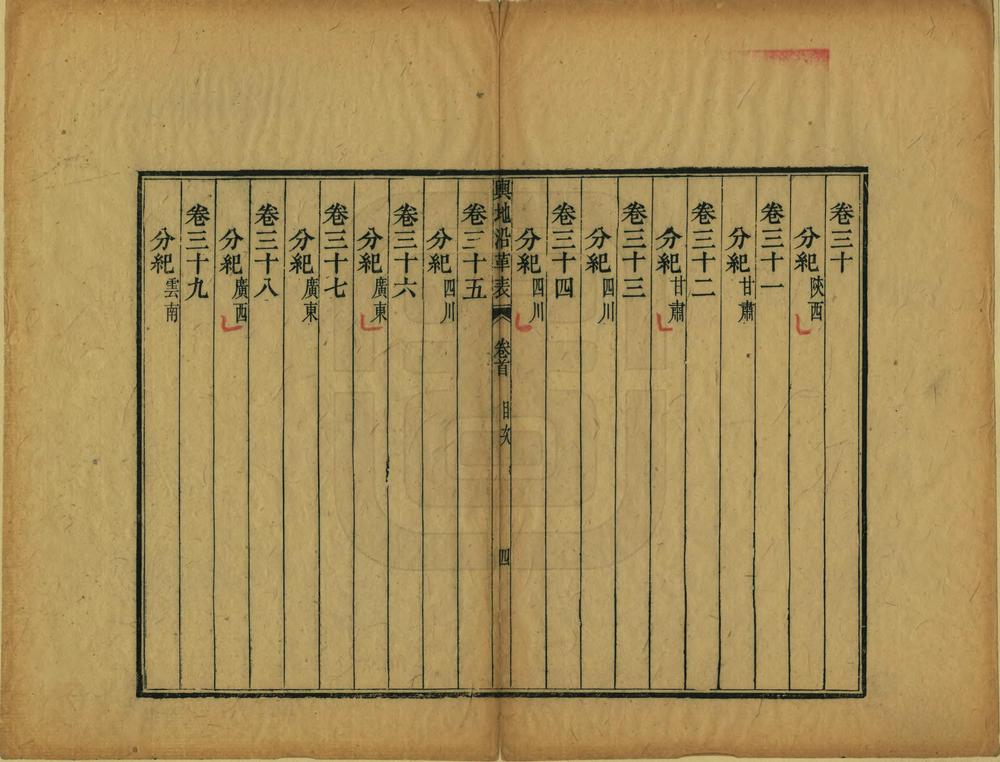 卷三十
分紀陝西
卷三十一
分紀甘肅
卷三十二
分紀甘肅
卷三十三
分紀四川
卷三十四
分紀四川
輿地沿革表 卷首 目次 四
卷三十五
分紀四川
卷三十六
分紀廣東
卷三十七
分紀廣東
卷三十八
分紀廣西
卷三十九
分紀雲南